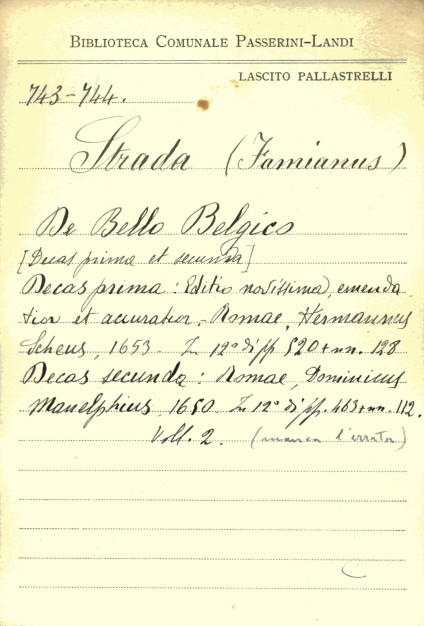 BIBLIOTECA COMUNALE PASSERINI-LANDI
LASCITO PALLASTRELLI
743-744.
Strada (Famianus)
De Bello Belgico
[Decas prima et secunda]
Decas prima: Editio novissima, emenda
tior et accuratior. - Romae, Hermannus
Scheus, 1653. In 12° di pp. 520+nn. 128
Decas secunda: Romae, Dominicus
Manelphius 1650 In 12° di pp. 463+nn. 112.
Voll. 2. (manca l'errata)